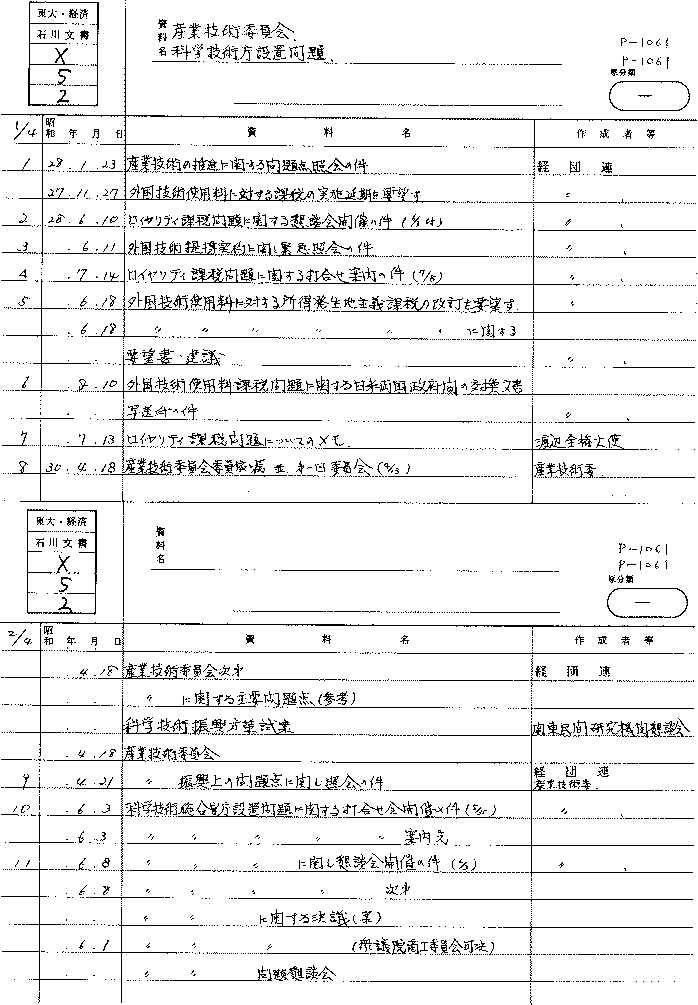 東大・経済
石川文書
X
5
2
資料名 産業技術委員会
科学技術庁設置問題
P-1061
P-1061
原分類
一
1/4 昭和 年 月 日 資料名 作成者等
1 28.1.23 産業技術の推進に関する問題点照会の件 経団連
27.11.27 外国技術使用料に対する課税の実施延期を要望す 〃
2 28.6.10 ロイヤリティ課税問題に関する懇談会開催の件 〃
3 .6.11 外国技術提携契約に関し緊急照会の件 〃
4 .7.14 ロイヤリティ課税問題に関する打合せ案内の件 〃
5 .6.18 外国技術使用料に対する所得発生地主義課税の改訂を要望す 〃
.6.18 〃 〃 〃 〃 〃 〃 に関する
要望書・建議 〃
6 .8.10 外国技術使用料課税問題に関する日米両国政府間の交換文書
写送付の件 〃
7 .7.13 ロイヤリティ課税問題についてのメモ 渡辺全権大使
8 30.4.18 産業技術委員会委員委嘱並第一回委員会 産業技術委
東大・経済
石川文書
X
5
2
資料名
P-1061
P-1061
原分類
一
2/4 昭和 年 月 日 資料名 作成者等
.4.18 産業技術委員会次第 経団連
〃 に関する主要問題点(参考)
科学技術振興方策試案 関東民間研究機関懇談会
.4.18 産業技術委員会
9 .4.21 〃 振興上の問題点に関し照会の件 経団連
産業技術委
10 .6.3 科学技術総合官庁設置問題に関する打合せ会開催の件 〃
.6.3 〃 〃 〃 〃 〃 案内先
11 .6.8 〃 〃 〃 に関し懇談会開催の件 〃
.6.8 〃 〃 〃 〃 次第
〃 〃 に関する決議(案)
.6.1 〃 〃 〃 (衆議院商工委員会可決)
〃 〃 問題懇談会